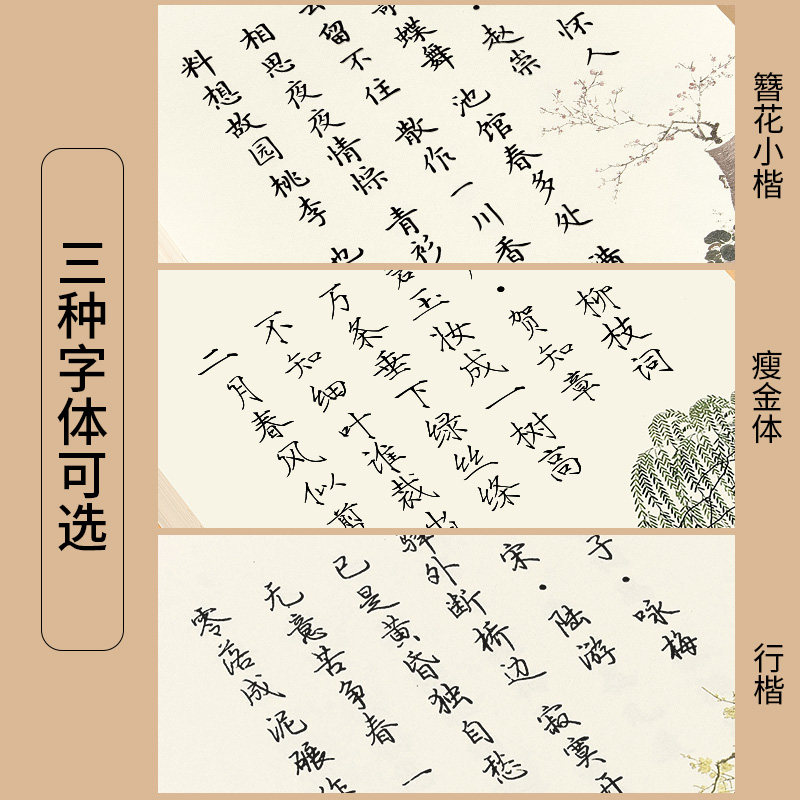 三种字体可选
怀人
·赵崇
蝶舞 池馆春多处 满
留不住 散作一川香
相思夜夜情悰 青衫
料想故园桃李 也
簪花小楷
柳枝词
·贺知章
玉妆成一树高
万条垂下绿丝绦
不知细叶谁裁出
二月春风似剪
瘦金体
子·咏梅
宋·陆游
驿外断桥边 寂寞开
已是黄昏独自愁
无意苦争春 一
零落成泥碾作
行楷